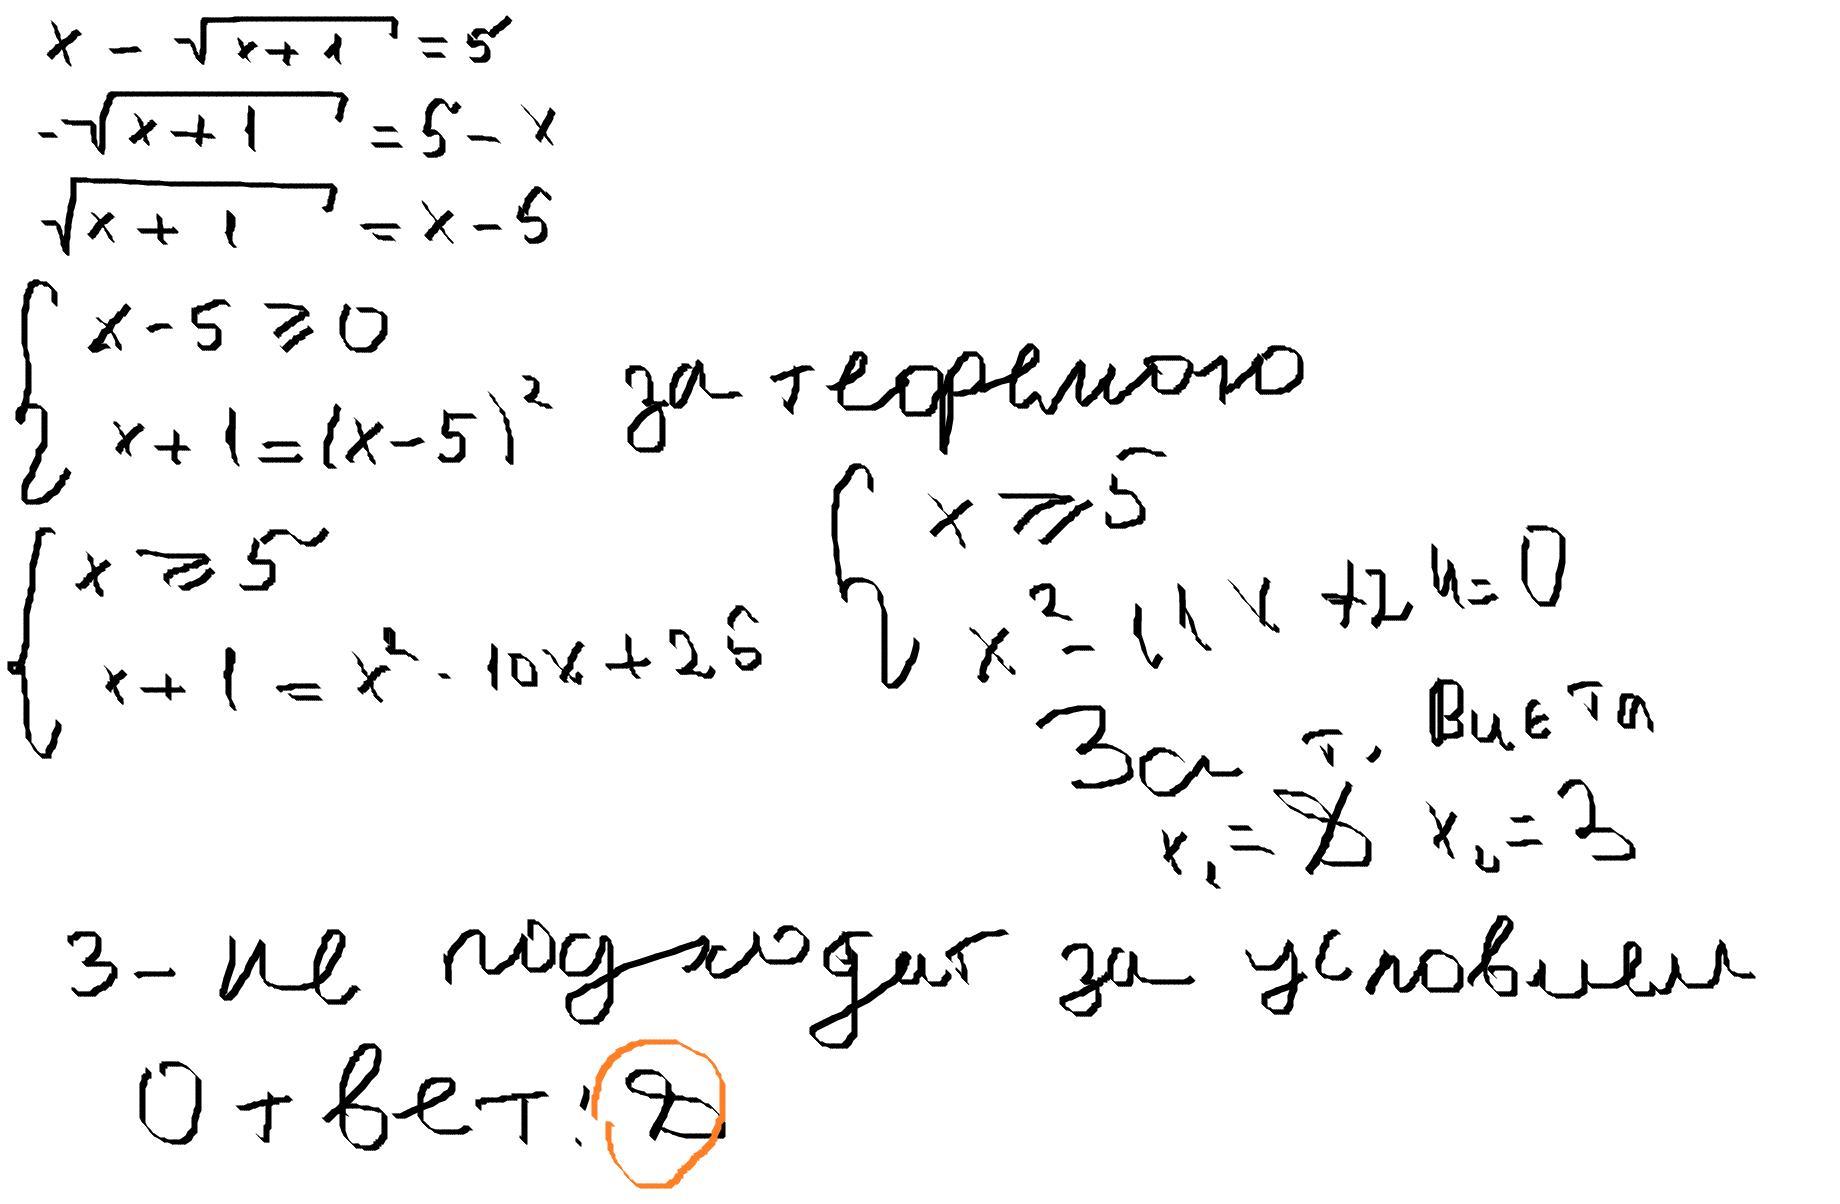 x - √x+1 = 5
-√x+1 = 5 - x
√x+1 = x - 5
{ x - 5 ⩾ 0
x + 1 = (x - 5)² за теоремою
{ x ⩾ 5
x + 1 = x² - 10x + 25
{ x ⩾ 5
x² - 11x + 24 = 0
За т. Виета
x₁ = 8 x₂ = 3
3 - не подходит за условием
Ответ: 8